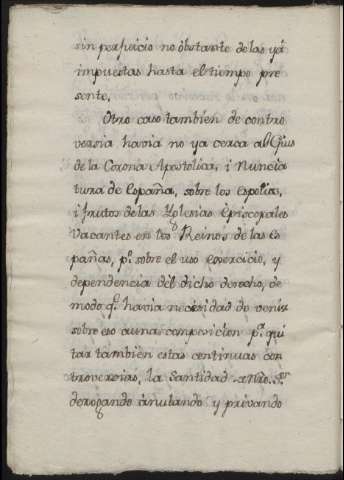 sin perjuicio no obstante de las yá
impuestas hasta el tiempo pre
sente.
Otro caso tambien de contro
versia havia no ya cerca al Gius
de la Corona Apostolica, i Nuncia
tura de España, sobre los espolia,
i frutos de las Yglesias Episcopales
vacantes en los Reinos de las Es
pañas, p.º sobre el uso exercicio, y
dependencia del dicho derecho, de
modo q.e havia necesidad de venir
sobre eso a una composicion p.a qui
tar tambien estas continuas con
troversias, la Santidad
derogando anulando y privando